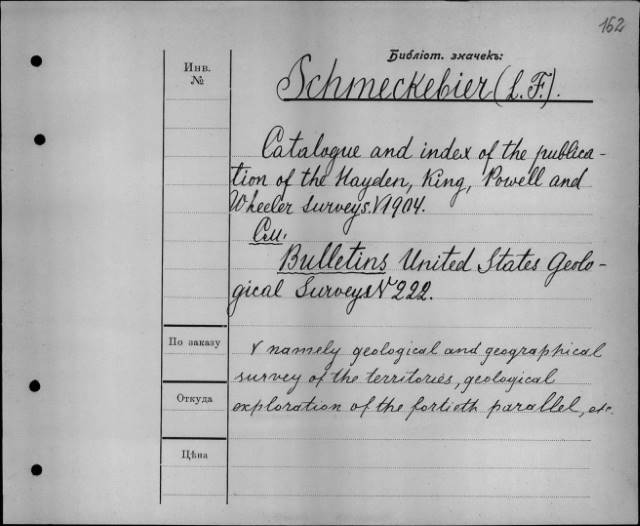 162
Библіот. значекъ:
Инв.
№
Schmeckebier (L. F.).
Catalogue and index of the publica-
tion of the Hayden, King, Powell and
Wheeler surveys. V 1904.
См.
Bulletins United States Geolo-
gical Surveys N 222.
По заказу
V namely geological and geographical
survey of the territories, geological
Откуда
exploration of the fortieth parallel, etc.
Цѣна